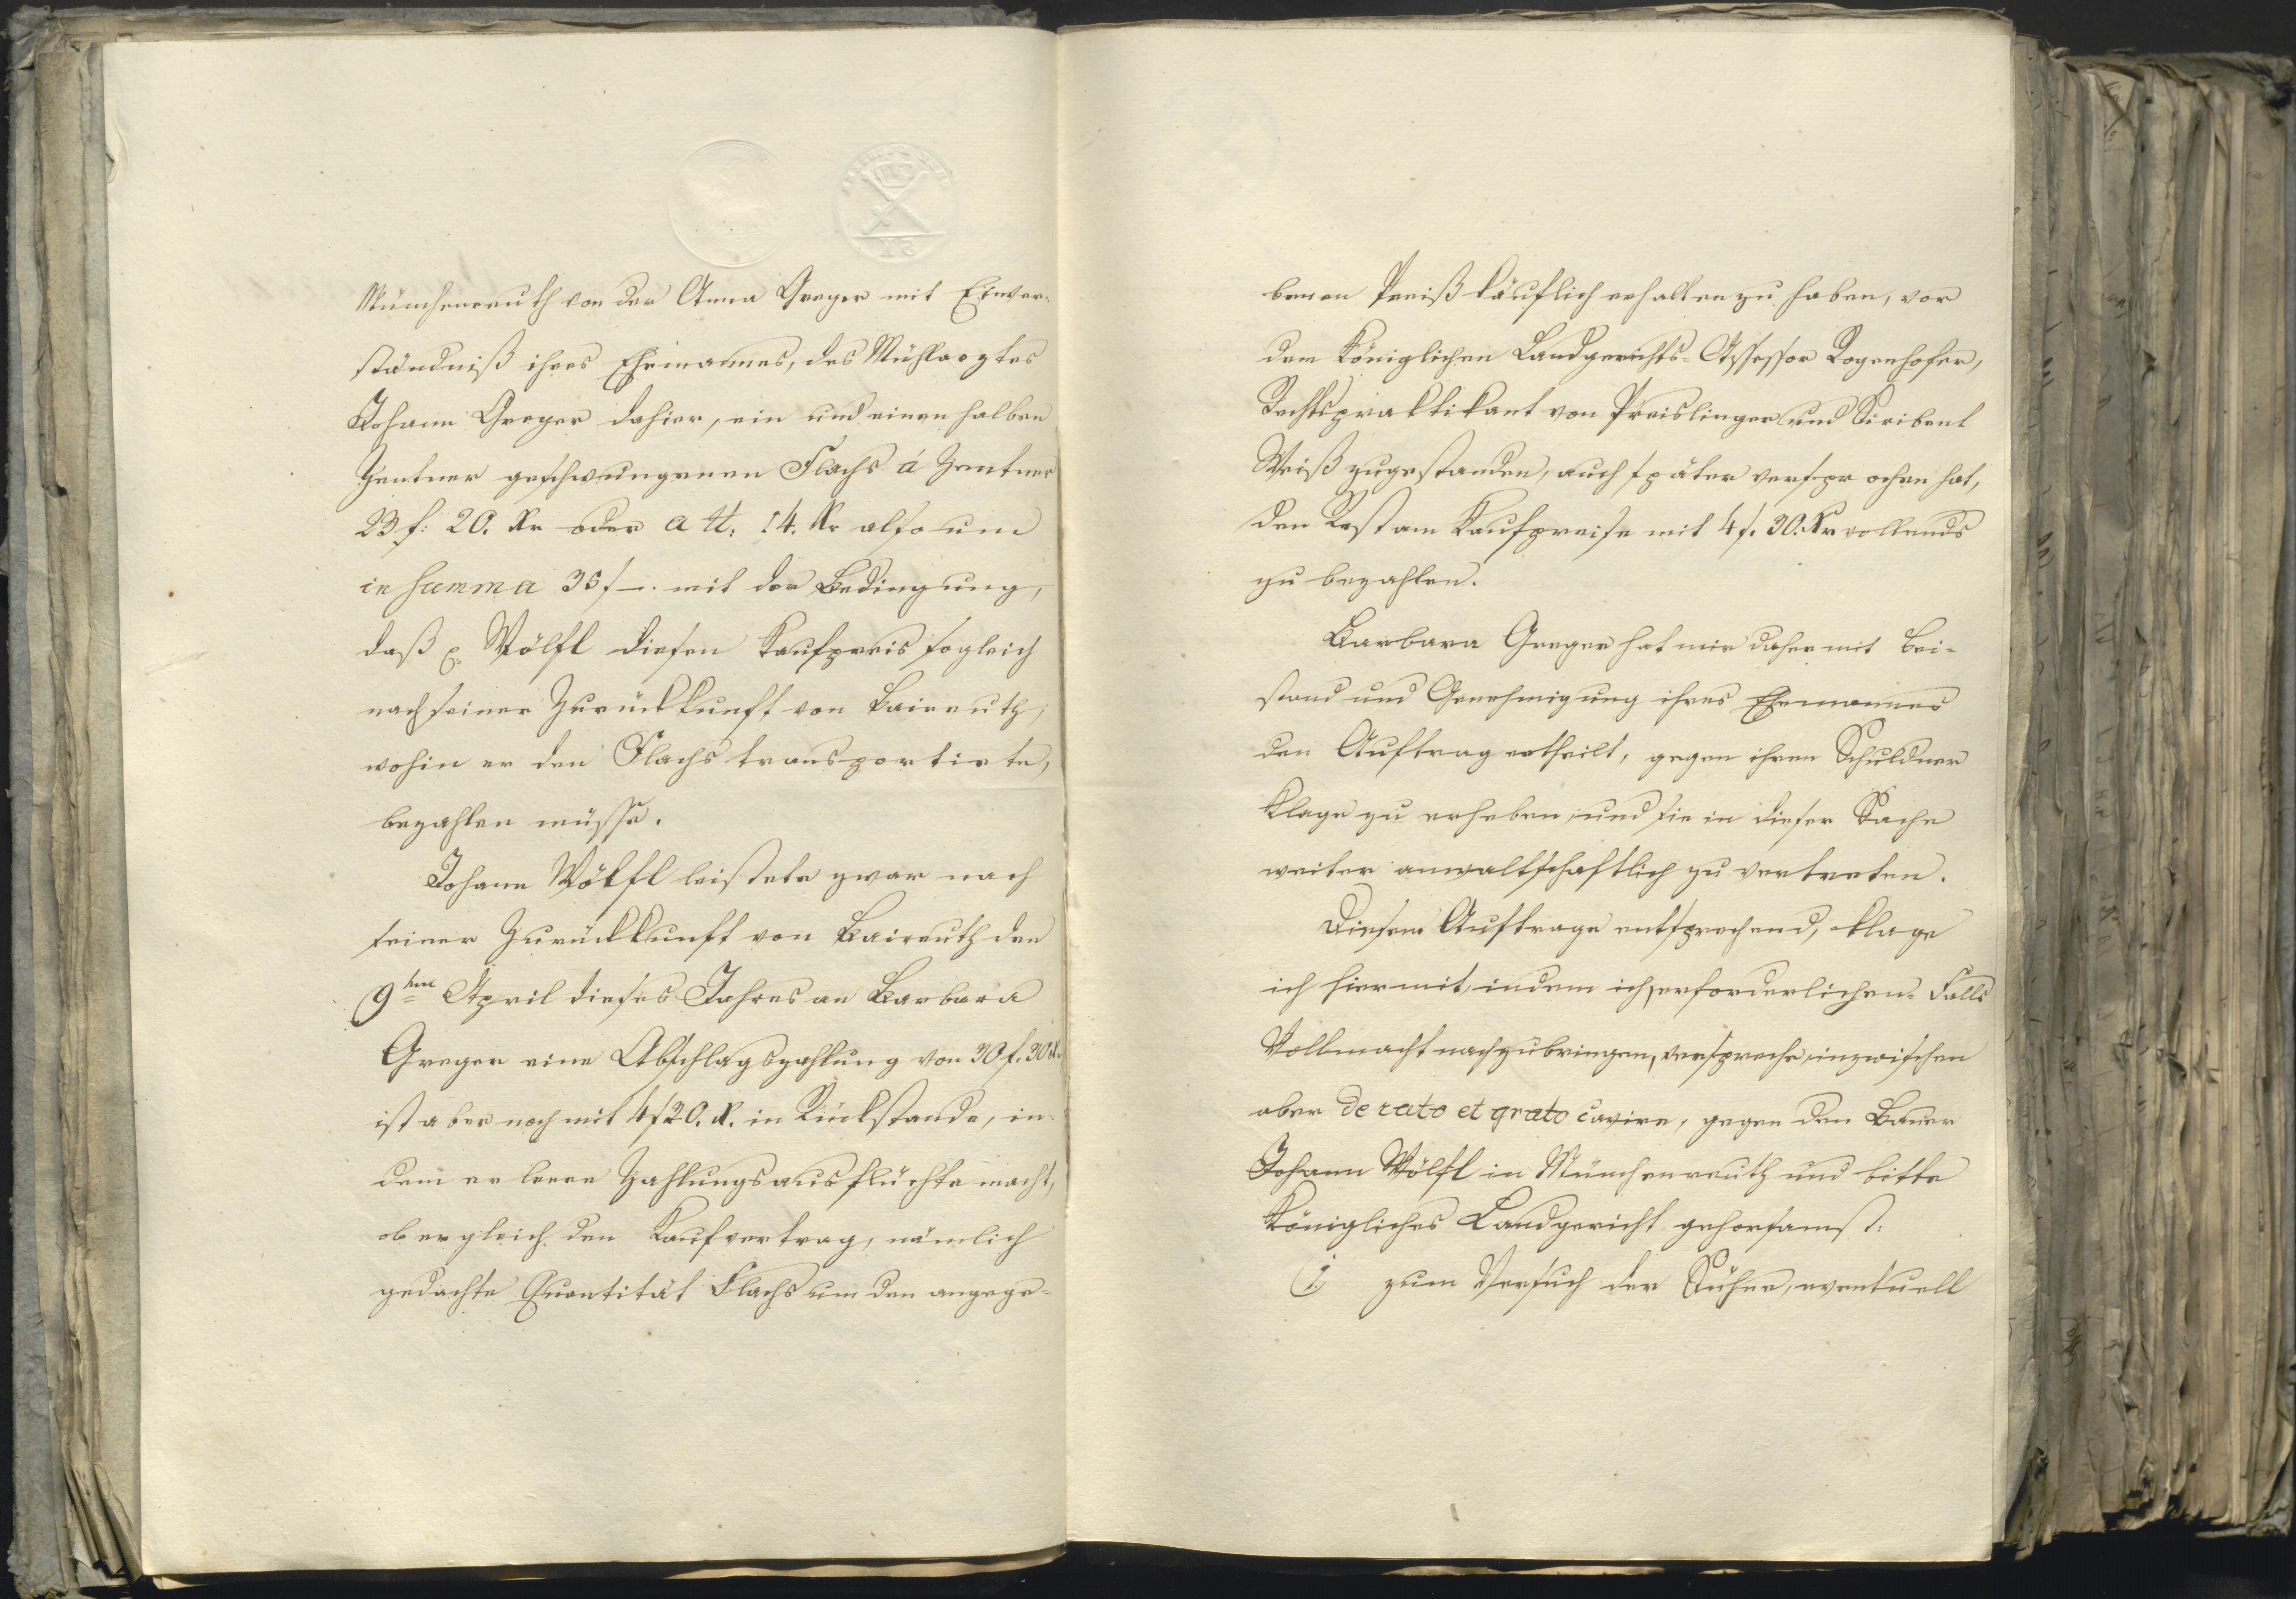 Münchenreuth von der Anna Greger mit Einver-
ständniß ihres Ehemannes, des Mühlarztes
Johann Greger dahier, ein und einen halben
Zentner geschwungenen Flachs á Zentner
23 f: 20. Kr oder a ℔: 14. Kr also um
in summa 35 f —. mit der Bedingung,
daß Wölfl diesen Kaufpreis sogleich
nach seiner Zurückkunft von Baireuth,
wohin er den Flachs transportirte,
bezahlen müsse.
Johann Wölfl leistete zwar nach
seiner Zurückkunft von Baireuth den
9ten April dieses Jahres an Barbara
Greger eine Abschlagszahlung von 30 f. 30 K.
ist aber noch mit 4 f 20. K. in Rückstande, in-
dem er leere Zahlungsausflüchte macht,
ob er gleich den Kaufvertrag, nämlich
gedachte Quantität Flachs um den angege-
benen Preiß käuflich erhalten zu haben, vor
dem Königlichen Landgerichts-Assessor Rogenhofer,
Rechtspraktikant von Preislinger und Scribent
Weiß zugestanden, auch später versprochen hat,
den Rest am Kaufpreise mit 4 f. 30. Kr vollends
zu bezahlen.
Barbara Greger hat mir daher mit Bei-
stand und Genehmigung ihres Ehemannes
den Auftrag ertheilt, gegen ihren Schuldner
Klage zu erheben, und sie in dieser Sache
weiter anwaltschaftlich zu vertreten.
Diesem Auftrage entsprechend, klage
ich hiermit, indem ich erforderlichen-Falls
Vollmacht nachzubringen, verspreche, inzwischen
aber de rato et grato cavire, gegen den Bauer
Johann Wölfl in Münchenreuth und bitte
Königliches Landgericht gehorsamst:
1) zum Versuch der Sühne, eventuell